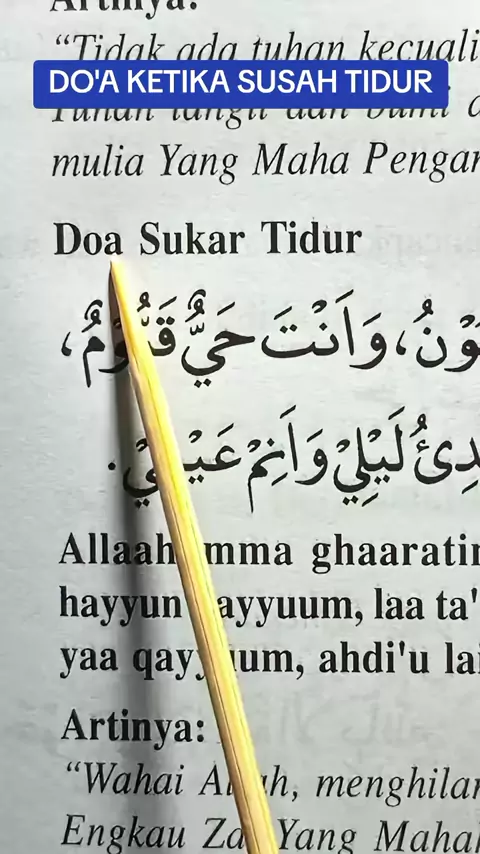 Artinya:
“Tidak ada tuhan kecuali
DO'A KETIKA SUSAH TIDUR
Tuhan langit dan bumi
mulia Yang Maha Pengam
Doa Sukar Tidur
وَاَنْتَ حَيٌّ قَيُّوْمٌ،
لَيْلِيْ وَاَنِمْ عَيْنِيْ.
Allaahumma ghaaratin
hayyun qayyuum, laa ta'
yaa qayyuum, ahdi'u lai
Artinya:
“Wahai Allah, menghilan
Engkau Zat Yang Mahal